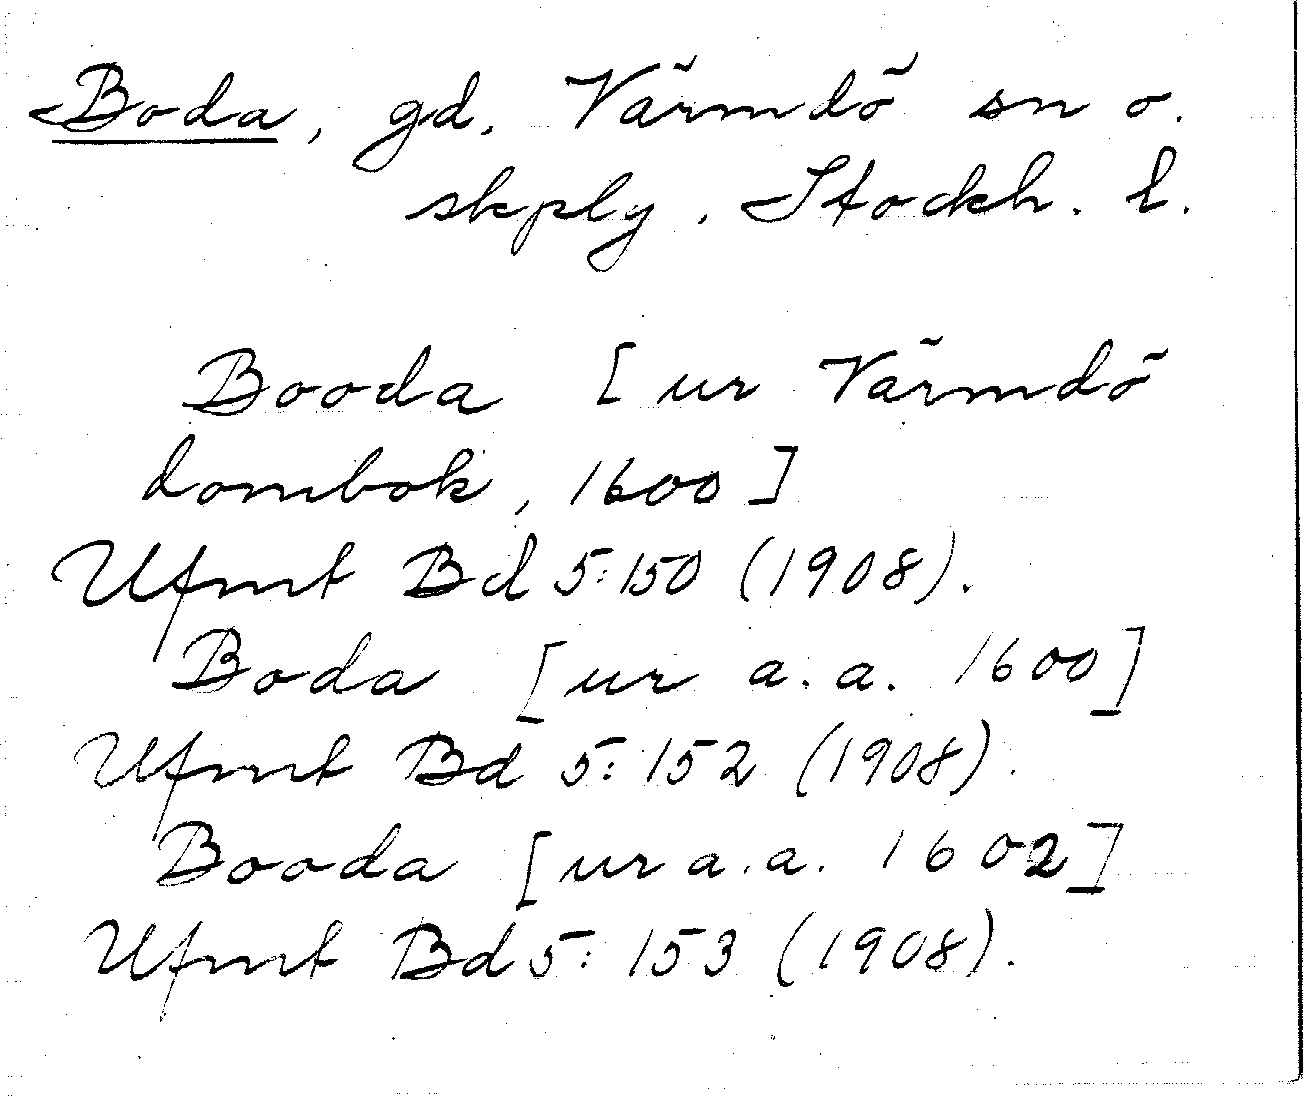 Boda, gd, Värmdö sn o.
skplg. Stockh. l.
Booda [ur Värmdö
dombok, 1600]
Ufmt Bd 5:150 (1908).
Boda [ur a.a. 1600]
Ufmt Bd 5:152 (1908).
Booda [ur a.a. 1602]
Ufmt Bd 5:153 (1908).